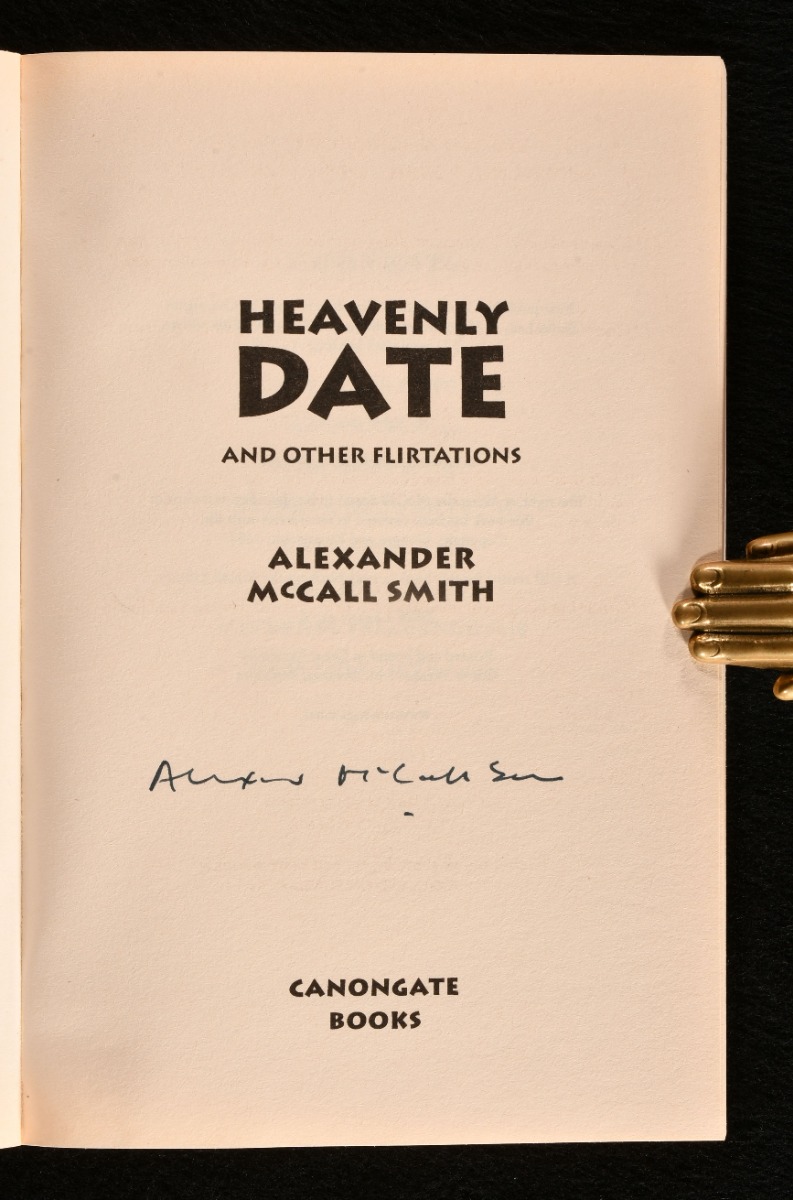 HEAVENLY
DATE
AND OTHER FLIRTATIONS
ALEXANDER
McCALL SMITH
Alexander McCall Smith
CANONGATE
BOOKS